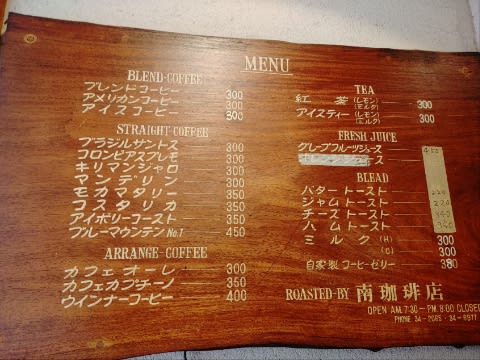 MENU
BLEND-COFFEE
ブレンドコーヒー 300
アメリカンコーヒー 300
アイスコーヒー 300
STRAIGHT-COFFEE
ブラジルサントス 300
コロンビアスプレモ 300
キリマンジャロ 300
マンデリン 300
モカマタリ 350
コスタリカ 350
アイボリーコースト 350
ブルーマウンテン No.1 450
ARRANGE-COFFEE
カフェオーレ 300
カフェカプチーノ 350
ウインナーコーヒー 400
TEA
紅茶 (レモン) (ミルク) 300
アイスティー (レモン) (ミルク) 300
FRESH JUICE
グレープフルーツジュース 450
ュース
BLEAD
バタートースト 220
ジャムトースト 220
チーズトースト 340
ハムトースト 340
ミルク (H) 300
(C) 300
自家製コーヒーゼリー 380
ROASTED-BY 南珈琲店
OPEN AM.7:30 - PM.8:00 CLOSED
PHONE 34-2085 · 34-8977